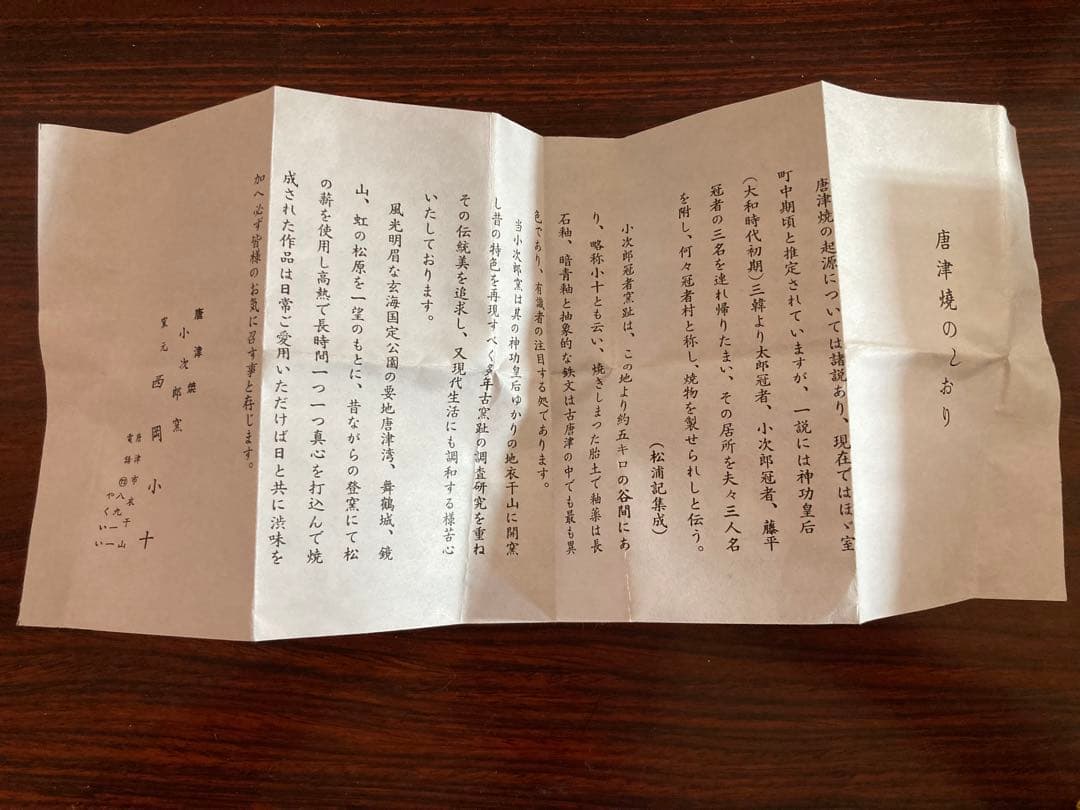 唐津燒のしおり
唐津焼の起源については諸説あり、現在ではほゞ室
町中期頃と推定されていますが、一説には神功皇后
(大和時代初期)三韓より太郎冠者、小次郎冠者、藤平
冠者の三名を連れ帰りたまい、その居所を夫々三人名
を附し、何々冠者村と称し、焼物を製せられしと伝う。
(松浦記集成)
小次郎冠者窯趾は、この地より約五キロの谷間にあ
り、略称小十とも云い、焼きしまった胎土で釉薬は長
石釉、暗青釉と抽象的な鉄文は古唐津の中でも最も異
色であり、有識者の注目する処であります。
当小次郎窯は其の神功皇后ゆかりの地衣干山に開窯
し昔の特色を再現すべく多年古窯趾の調査研究を重ね
その伝統美を追求し、又現代生活にも調和する様苦心
いたしております。
風光明眉な玄海国定公園の要地唐津湾、舞鶴城、鏡
山、虹の松原を一望のもとに、昔ながらの登窯にて松
の薪を使用し高熱で長時間一つ一つ真心を打込んで焼
成された作品は日常ご愛用いただけば日と共に渋味を
加へ必ず皆様のお気に召す事と存じます。
唐津焼
小次郎窯
窯元 西岡小十
唐津市衣干山
電話 八九一一
やくいい